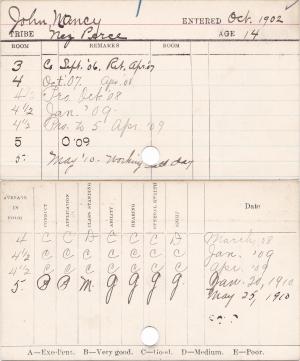 John, Nancy ENTERED Oct. 1902
TRIBE Nez Perce AGE 14
ROOM REMARKS ROOM
3 Co Sept. '06. Ret. Apr. 07
4 Oct. '07. Apr. 08
4½ Pro. Oct. 08
4½ Jan. '09.
4½ Pro. to 5 Apr. '09
5 O '09
5. May '10. Working all day
AVERAGE IN ROOM CONDUCT APPLICATION CLASS STANDING ABILITY HEARING GENERAL HEALTH SIGHT Date
4 C C D C C C D March, 08
4½ C C C C C C C Jan. '09
4½ C C C C C C C Apr. '09
5 B B M G G G G Jan. 20, 1910
May 25, 1910
A—Excellent. B—Very good. C—Good. D—Medium. E—Poor.